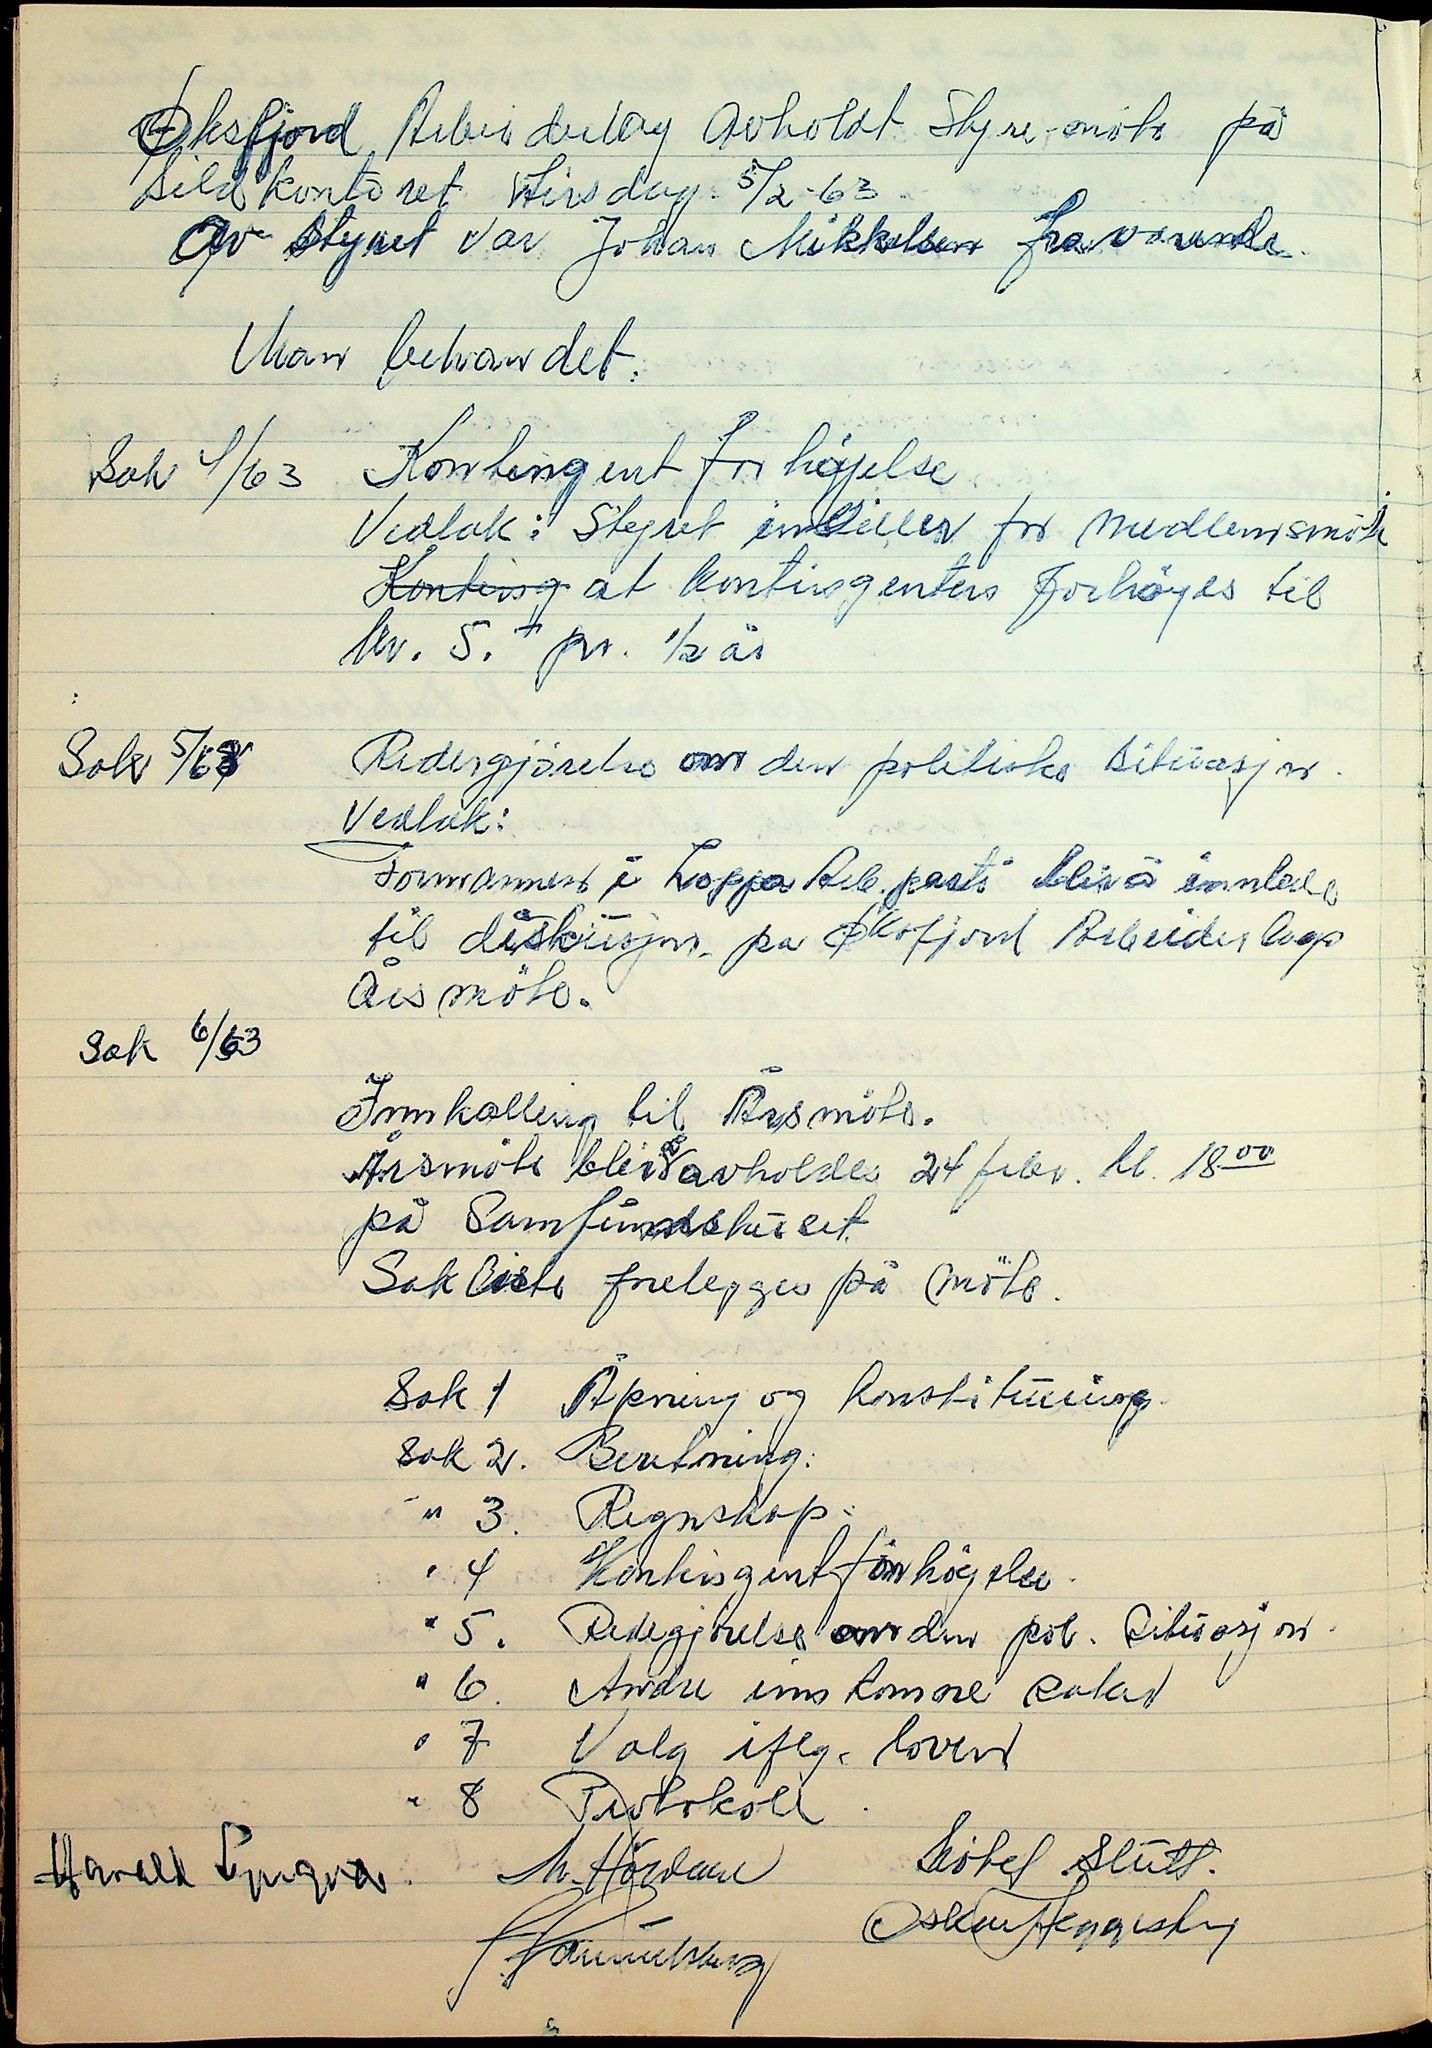 Øksfjord Arbeiderlag avholdt Styre-møte på
Sildkontoret tirsdag. 5/2-63.
Av styret var Johan Mikkelsen fraværende.
Man behandlet:
Sak 4/63 Kontingent forhøjelse
Vedtak: Styret instiller for medlemsmøte
Konting at kontingenten forhøyes til
kr. 5.- pr. 1/2 år
Sak 5/63 Redergjörelse om den politiske situasjon.
Vedtak:
Formannen i Loppa Arb. parti blir å innlede
til diskusjon på Øksfjord Arbeiderlags
Årsmöte.
Sak 6/63
Innkalling til Årsmöte.
Årsmöte blir å avholdes 24 febr. kl. 18.00
på Samfundshuset
Sakliste frelegges på möte.
Sak 1 Åpning og konstituering.
Sak 2. Beretning.
" 3. Regnskap.
" 4 Kontingentforhöyelse.
" 5. Redegjörelse om den pol. situasjon.
" 6. Andre innkomne saker
" 7 Valg iflg. loven
" 8 Protokoll.
Harald
Oskar